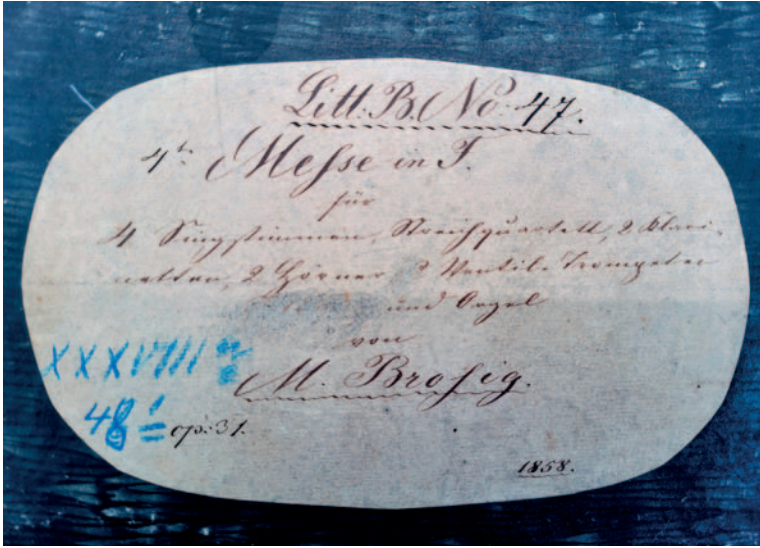 Litt: B. No 47.
4te Messe in F.
für
4 Singstimmen, Streichquartett, 2 Klari-
netten, 2 Hörner, 2 Ventil-Trompeten
und Orgel
von
M. Brosig.
XXXVIII
48
op: 31.
1858.